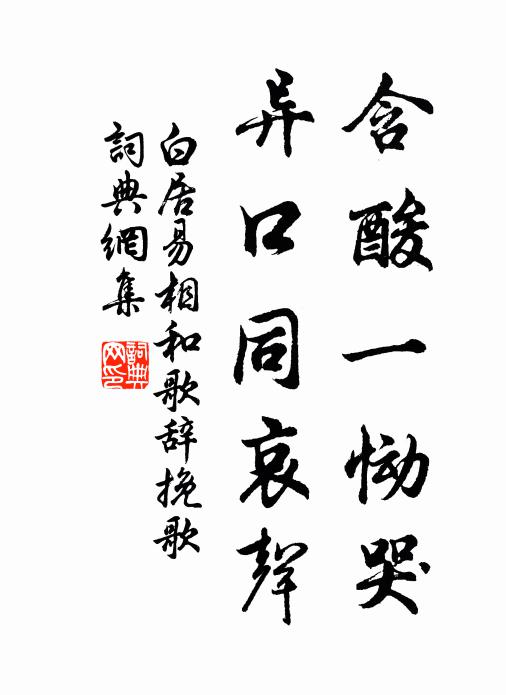 含酸一恸哭
异口同哀聲
白居易相和歌辞挽歌
詞典網集
詞典网印